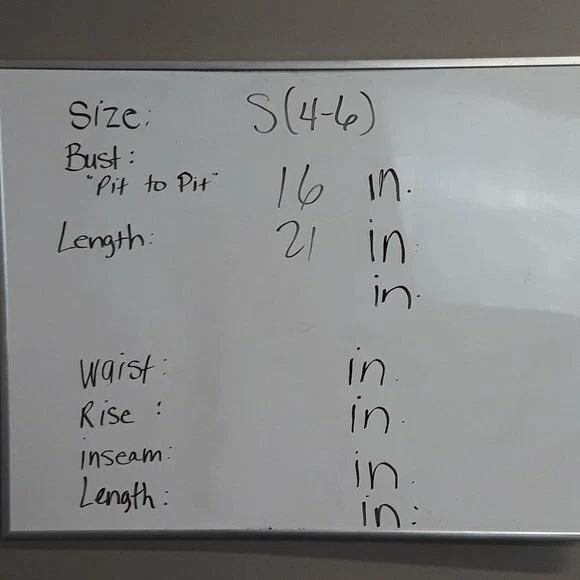 Size: S(4-6)
Bust:
"Pit to Pit" 16 in.
Length: 21 in.
in.
Waist: in.
Rise: in.
inseam: in.
Length: in.